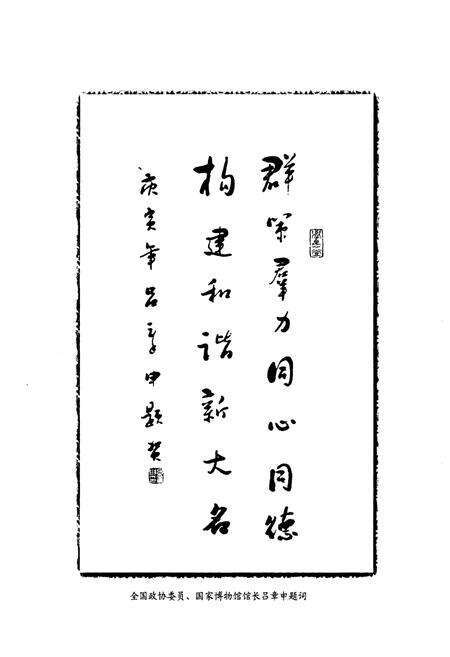 群策羣力同心同德
构建和谐新大名
庚寅年吕章申题贺
全国政协委员、国家博物馆馆长吕章申题词